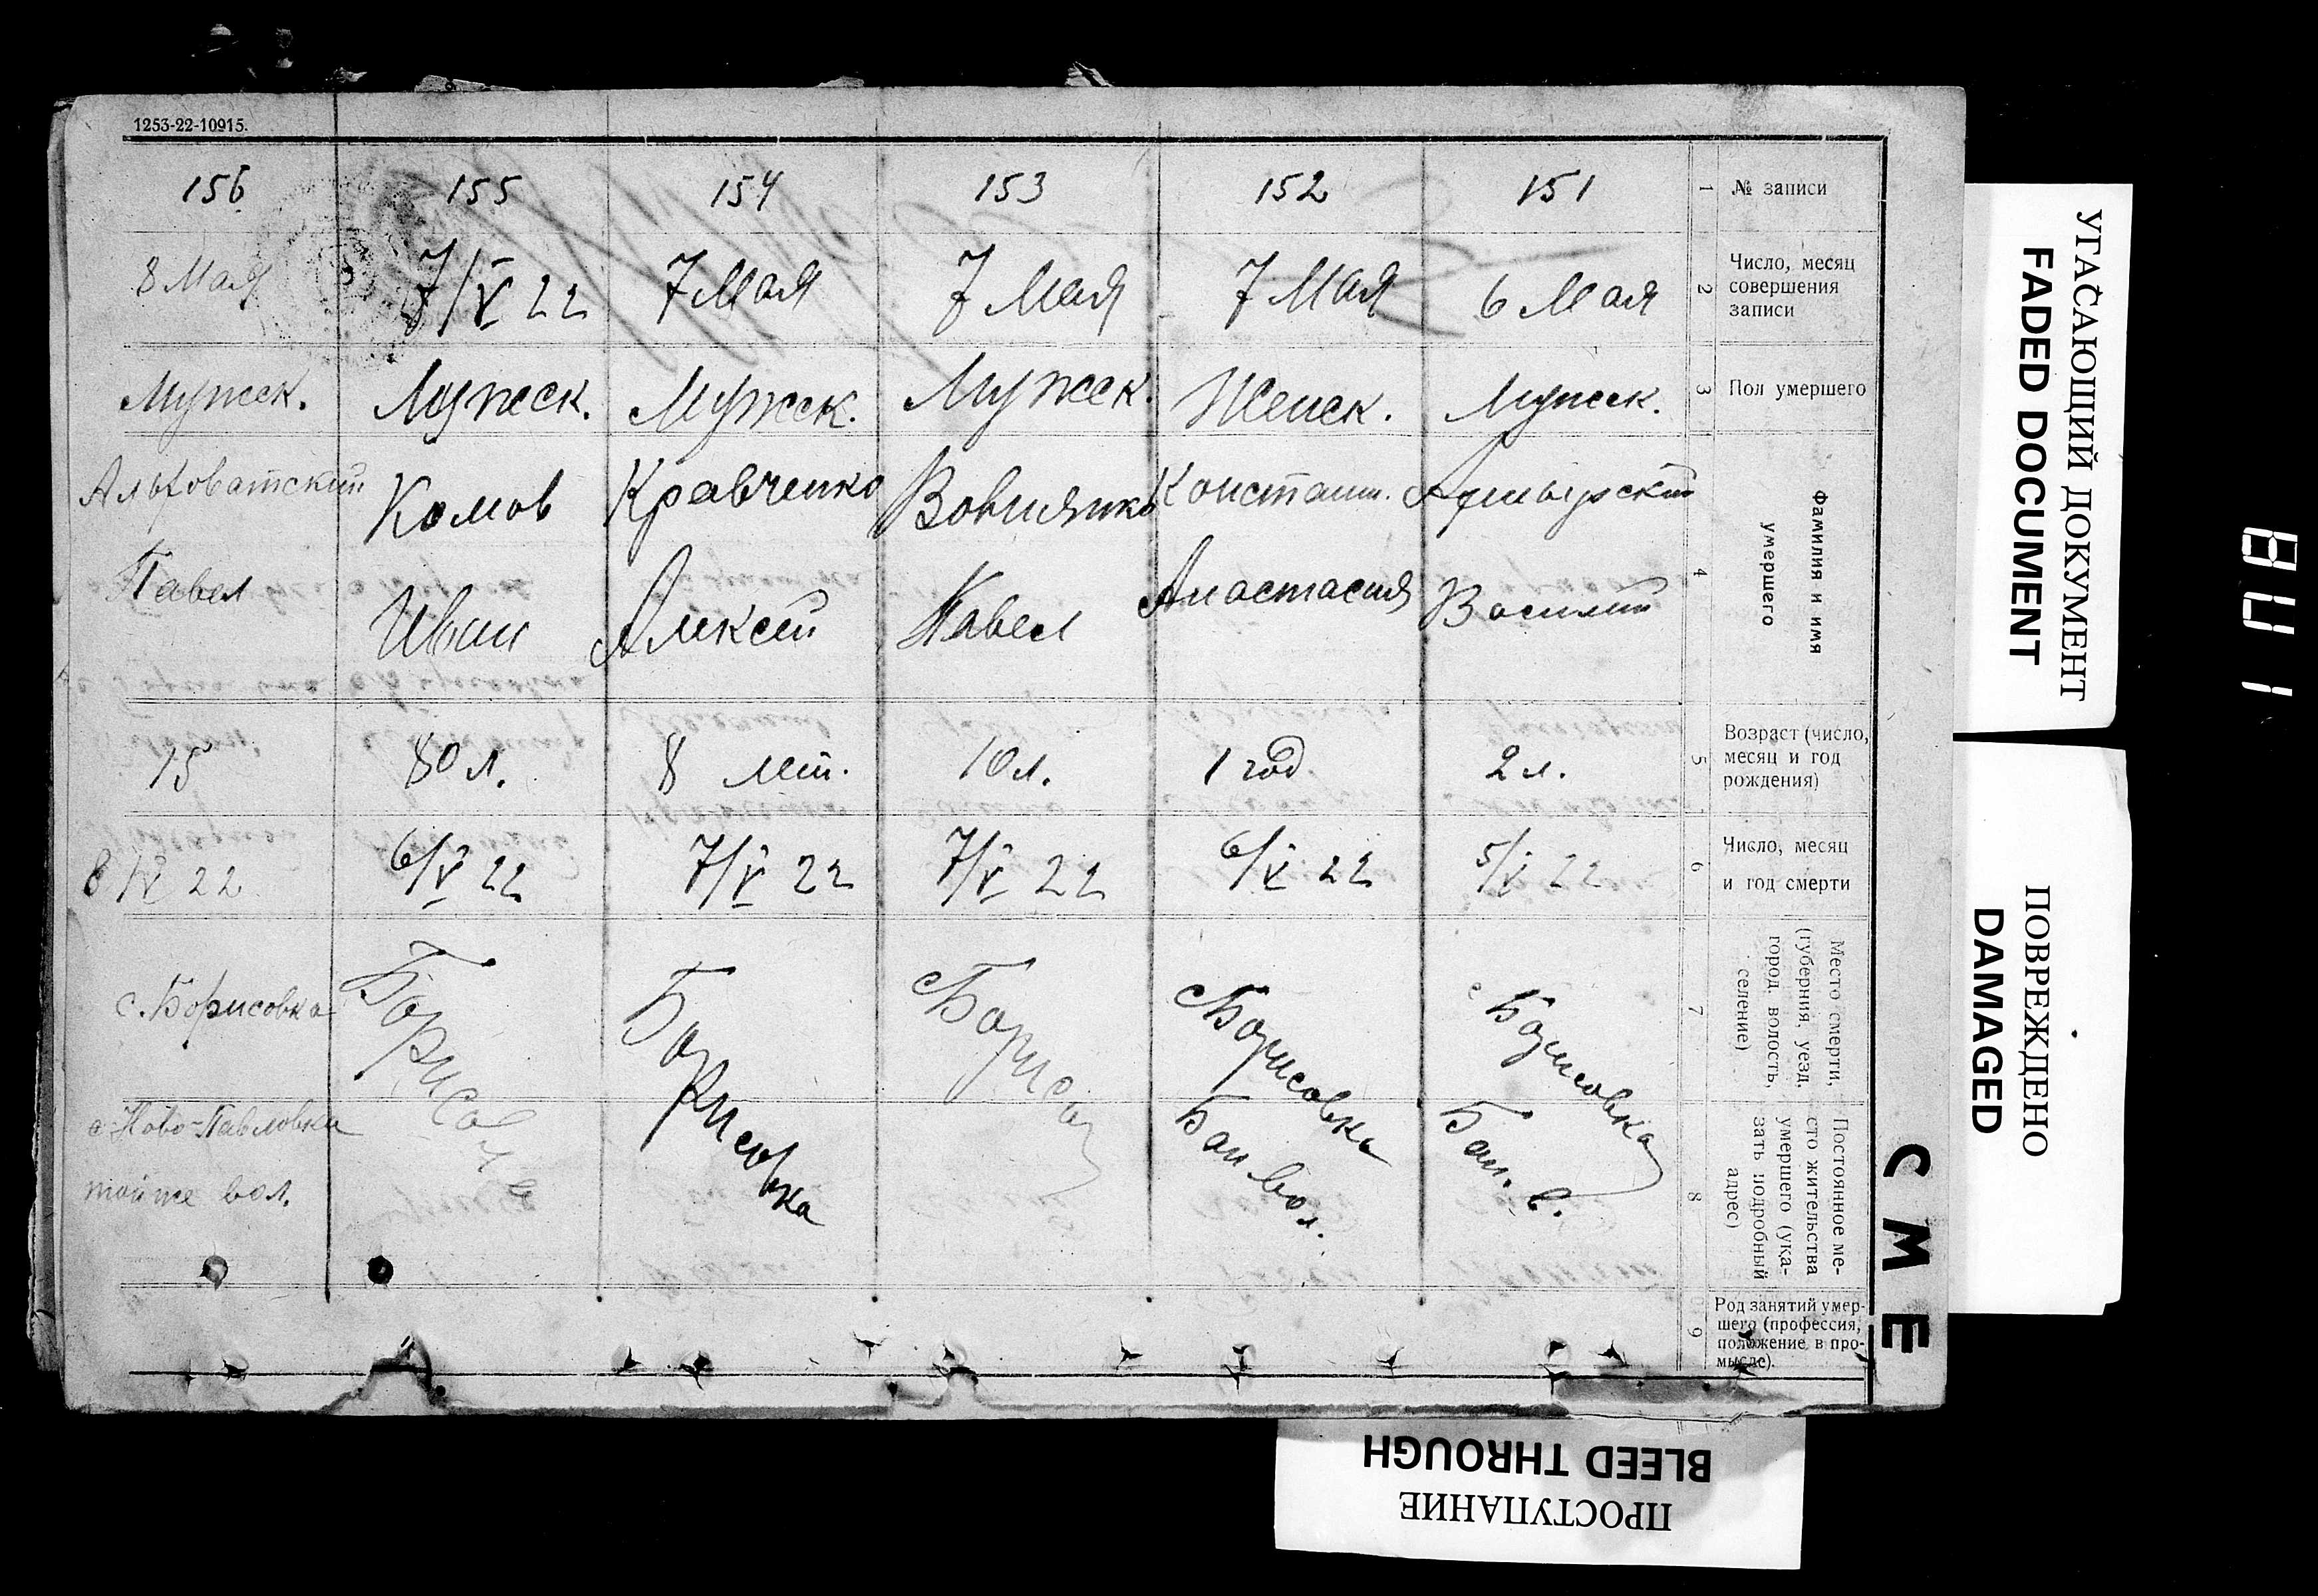 1253-22-10915.
156 155 154 153 152 151 1 № записи
8 Мая 7/V 22 7 Мая 7 Мая 7 Мая 6 Мая 2 Число, месяц
совершения
записи
Мужск. Мужск. Мужск. Мужск. Женск. Мужск. 3 Пол умершего
Комов Кравченко Констант.
Павел Иван Алексей Павел Анастасия Василий 4 Фамилия и имя
умершего
15 80 л. 8 лет. 10 л. 1 год 2 л. 5 Возраст (число,
месяц и год
рождения)
8/V 22 6/V 22 7/V 22 7/V 22 6/V 22 5/V 22 6 Число, месяц
и год смерти
с. Борисовка Борисовка Борисовка с Борисов с Борисовка с Борисовка 7 Место смерти,
(губерния, уезд,
город, волость,
селение)
с. Ново-Павловка Бап вол. Бап. в. 8 Постоянное ме-
тойже вол. сто жительства
умершего (ука-
зать подробный
адрес)
9 Род занятий умер-
шего (профессия,
положение в про-
мысле).
УГАСАЮЩИЙ ДОКУМЕНТ
FADED DOCUMENT
ПОВРЕЖДЕНО
DAMAGED
ПРОСТУПАНИЕ
BLEED THROUGH
С М Е